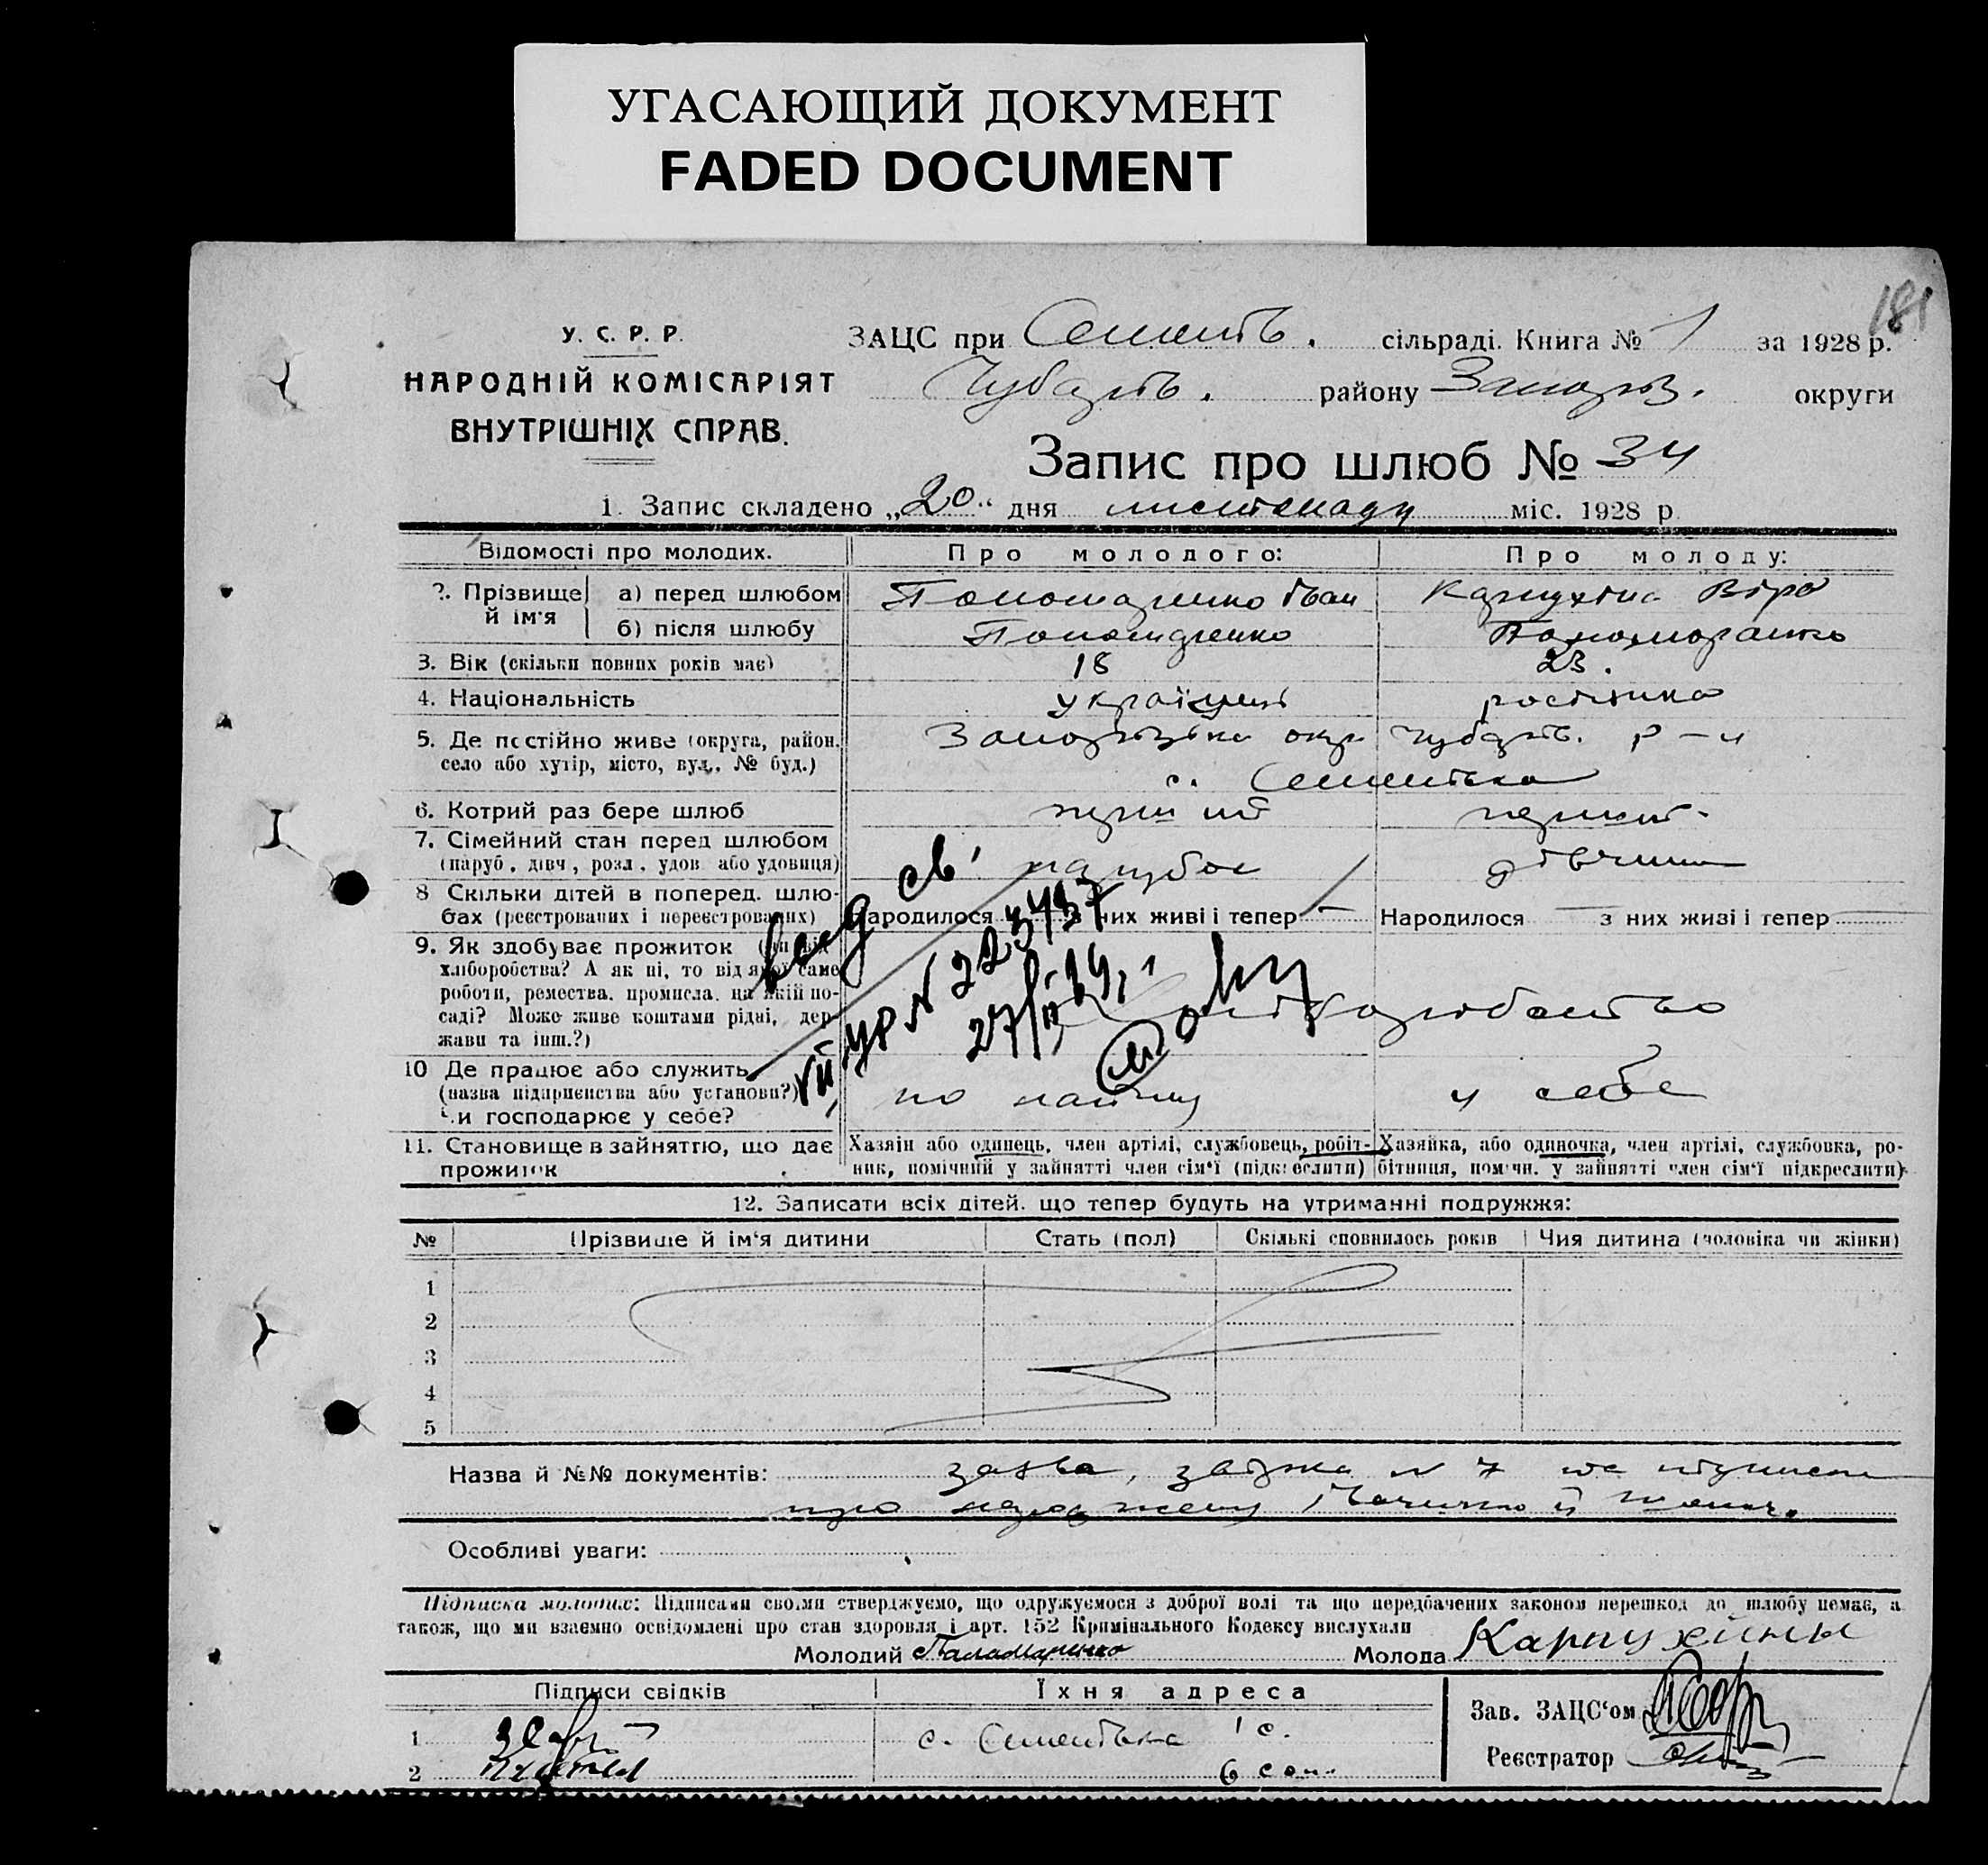 УГАСАЮЩИЙ ДОКУМЕНТ
FADED DOCUMENT
181
У. С. Р. Р.
НАРОДНІЙ КОМІСАРІЯТ
ВНУТРІШНІХ СПРАВ.
ЗАЦС при Семенів. сільраді. Книга № 1 за 1928 р.
Чубарів. району Запоріз. округи
Запис про шлюб № 34
1. Запис складено „20“ дня листопаду міс. 1928 р
Відомості про молодих. Про молодого: Про молоду:
2. Прізвище й ім'я
а) перед шлюбом Пономаренко Іван Карпухіна Віра
б) після шлюбу Пономаренко Пономаренко
3. Вік (скільки повних років має) 18 23.
4. Національність українец росіянка
5. Де постійно живе (округа, район, Запорізька окр. Чубарів. р-н
село або хутір, місто, вул., № буд.) с. Семенівка
6. Котрий раз бере шлюб перший перший
7. Сімейний стан перед шлюбом
(паруб., дівч., розл., удов. або удовиця) парубок дівчина
8 Скільки дітей в поперед. шлю-
бах (реєстрованих і нереєстрованих) Народилося з них живі і тепер — Народилося — з них живі і тепер —
9. Як здобуває прожиток
хліборобства? А як ні, то від якої саме
роботи, ремества, промисла, на якій по-
саді? Може живе коштами рідні, дер-
жави та інш.?)
Хліборобство
10 Де працює або служить
(назва підприємства або установи?)
Чи господарює у себе?
по найму у себе
11. Становище в зайняттю, що дає
прожиток
Хазяін або одинець, член артілі, службовець, робіт-
ник, помічний у зайнятті член сім'ї (підкреслити)
Хазяйка, або одиночка, член артілі, службовка, ро-
бітниця, помічн. у зайнятті член сім'ї підкреслити)
выд св.
№ 223437
12. Записати всіх дітей, що тепер будуть на утриманні подружжя:
№ Прізвище й ім'я дитини Стать (пол) Скількі сповнилось років Чия дитина (чоловіка чи жінки)
1
2
3
4
5
Назва й №№ документів: заява, довідка № 7 та
про
Особливі уваги:
Підписка молодих: Підписами своїми стверджуємо, що одружуємося з доброї волі та що передбачених законом перешкод до шлюбу немає, а
також, що ми взаємно освідомлені про стан здоровля і арт. 152 Кримінального Кодексу вислухали
Молодий Паламаренко Молода Карпухины
Підписи свідків Їхня адреса
1 с. Семенівка 1 с.
2 6 сот.
Зав. ЗАЦС'ом
Реєстратор